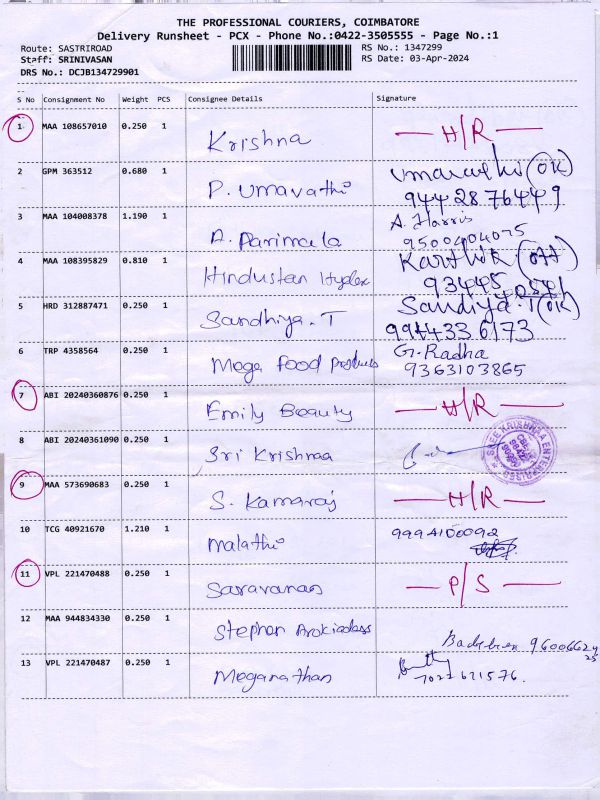 THE PROFESSIONAL COURIERS, COIMBATORE
Delivery Runsheet - PCX - Phone No.:0422-3505555 - Page No.:1
Route: SASTRIROAD RS No.: 1347299
Staff: SRINIVASAN RS Date: 03-Apr-2024
DRS No.: DCJB134729901
S No Consignment No Weight PCS Consignee Details Signature
1 MAA 108657010 0.250 1 Krishna H/R
2 GPM 363512 0.680 1 P. Umavathi Umavathi (OK)
9442876449
3 MAA 104008378 1.190 1 A. Parimala A. Harris
9500404075
4 MAA 108395829 0.810 1 Hindustan Hydex Karthik (off)
93445
5 HRD 312887471 0.250 1 Sandhiya. T Sandiya. T (OK)
9944336173
6 TRP 4358564 0.250 1 Mega Food Products G. Radha
9363103865
7 ABI 20240360876 0.250 1 Emily Beauty H/R
8 ABI 20240361090 0.250 1 Sri Krishnaa
SREE KRISHNAA ENTERPRISES
9 MAA 573690683 0.250 1 S. Kamaraj H/R
10 TCG 40921670 1.210 1 Malathi 9994100092
11 VPL 221470488 0.250 1 Saravanan P/S
12 MAA 944834330 0.250 1 Stephen Arokiadass
13 VPL 221470487 0.250 1 Meganathan